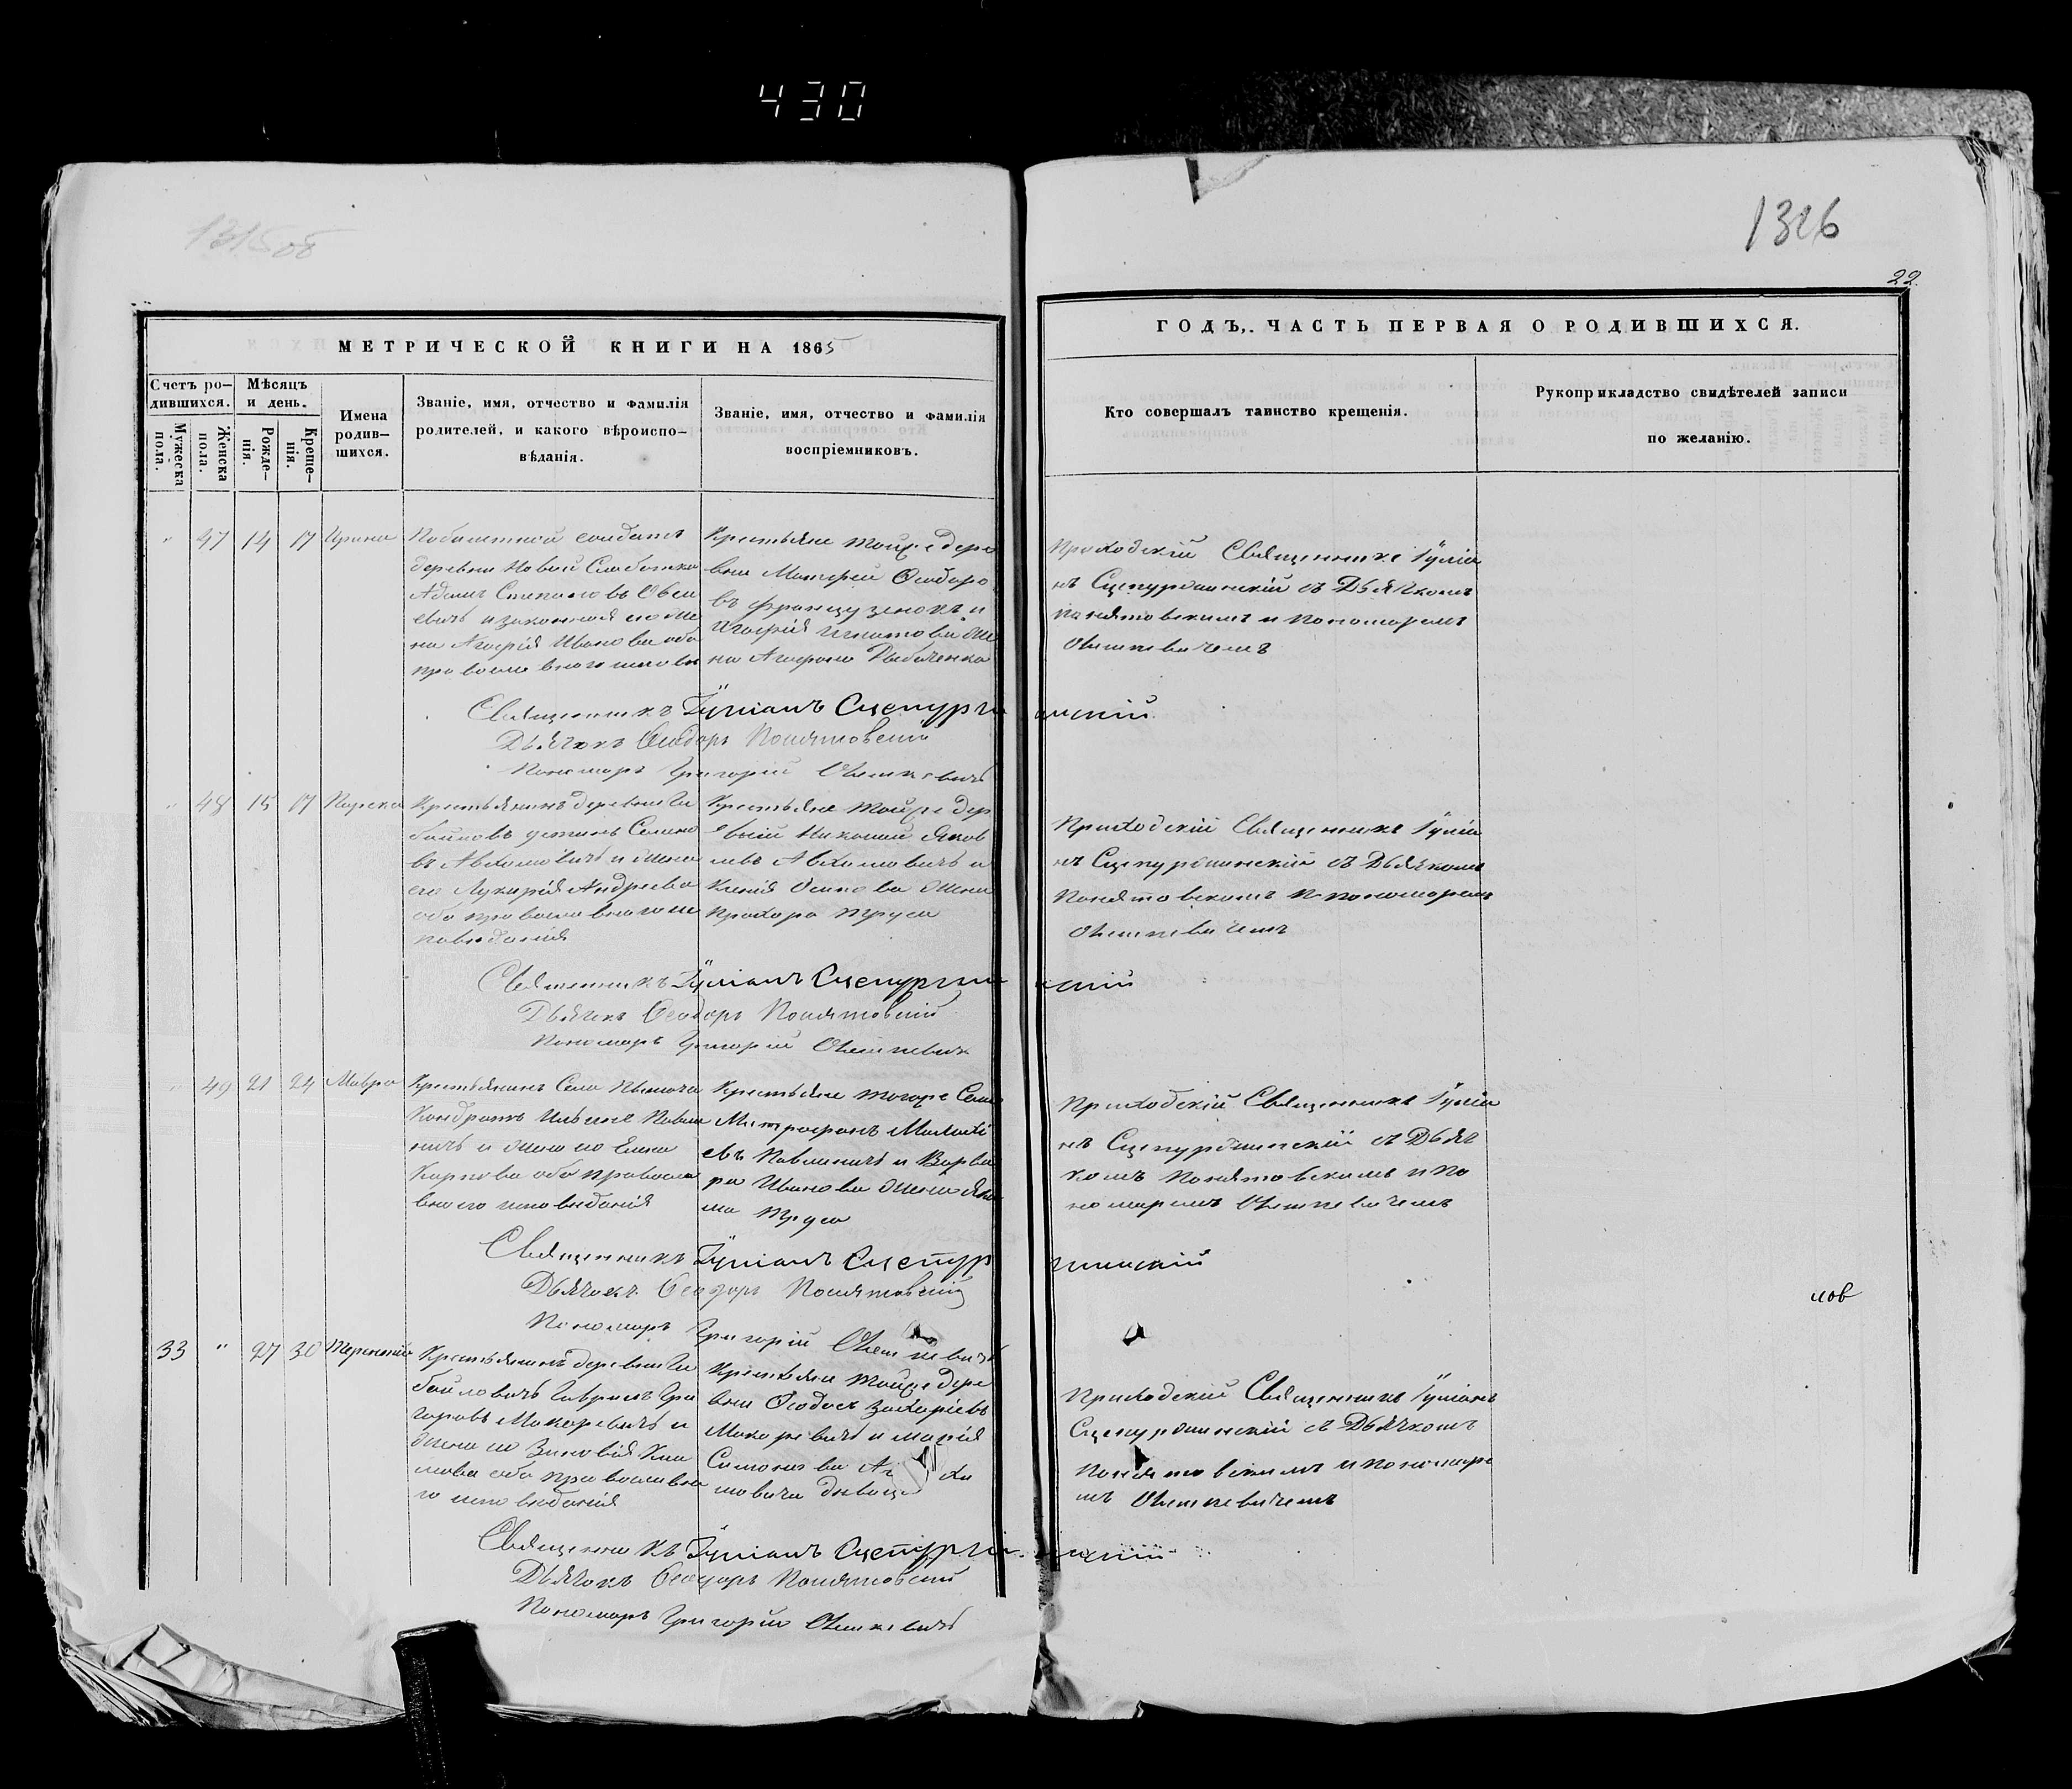 430
1315об
1316
22.
МЕТРИЧЕСКОЙ КНИГИ НА 1865
ГОДЪ,. ЧАСТЬ ПЕРВАЯ О РОДИВШИХСЯ.
Счетъ ро–
дившихся.
Мужеска
пола.
Женска
пола.
Мѣсяцъ
и день.
Рожде–
нія.
Креще–
нія.
Имена
родив–
шихся.
Званіе, имя, отчество и фамилія
родителей, и какого вѣроиспо–
вѣданія.
Званіе, имя, отчество и фамилія
воспріемниковъ.
Кто совершалъ таинство крещенія.
Рукоприкладство свидѣтелей записи
по желанію.
" 47 14 17 Ирина
солдатъ
деревни Новой Слободки
Адамъ Степановъ
евичъ и законная его же
на Агафія Иванова оба
православнаго исповѣ
Крестьяне тойже дере
вни Матфей Ѳеодоро
въ Французенокъ и
Агафія Игнатова же
на
Приходскій Священникъ Іуліа
нъ Сцепуржинскій съ Дьячкомъ
Понятовскимъ и пономаремъ
Олешкевичемъ
Священникъ Іуліанъ Сцепуржинскій
Дьячокъ Ѳеодоръ Понятовскій
Пономарь Григорій Олешкевичъ
" 48 15 17
Крестьянинъ деревни Ги
Семено
въ Авхимовичъ и жена
его Лукерія Андреева
оба православнаго ис
повѣданія
Крестьяне тойже дер
евни Николай Яков
левъ Авхимовичъ и
Ксенія Осипова жена
Прохора Труса
Приходскій Священникъ Іуліа
нъ Сцепуржинскій съ Дьячкомъ
Понятовскимъ и пономаремъ
Олешкевичемъ
Священникъ Іуліанъ Сцепуржинскій
Дьячокъ Ѳеодоръ Понятовскій
Пономарь Григорій Олешкевичъ
" 49 21 24 Мавра
Крестьянинъ Села
Кондратъ Ильинъ Павли
ничъ и жена его Елена
Карпова оба правосла
внаго исповѣданія
Крестьяне тогоже Села
Митрофанъ
евъ Павлиничъ и Варва
ра Иванова жена
Труса
Приходскій Священникъ Іуліа
нъ Сцепуржинскій съ Дьяч
комъ Понятовскимъ и по
номаремъ Олешкевичемъ
Священникъ Іуліанъ Сцепуржинскій
Дьячокъ Ѳеодоръ Понятовскій
Пономарь Григорій Олешкевичъ
33 " 27 30 Терентій
Крестьянинъ деревни Ги
Гавріилъ Гри
горовъ Макаревичъ и
жена его Зиновія Кли
мова оба православна
го исповѣданія
Крестьяне тойже дере
вни Ѳеодосъ Захаріевъ
Макаревичъ и Марія
Симонова
мовича дѣвица
Приходскій Священникъ Іуліанъ
Сцепуржинскій съ Дьячкомъ
Понятовскимъ и пономаре
мъ Олешкевичемъ
Священникъ Іуліанъ Сцепуржинскій
Дьячокъ Ѳеодоръ Понятовскій
Пономарь Григорій Олешкевичъ